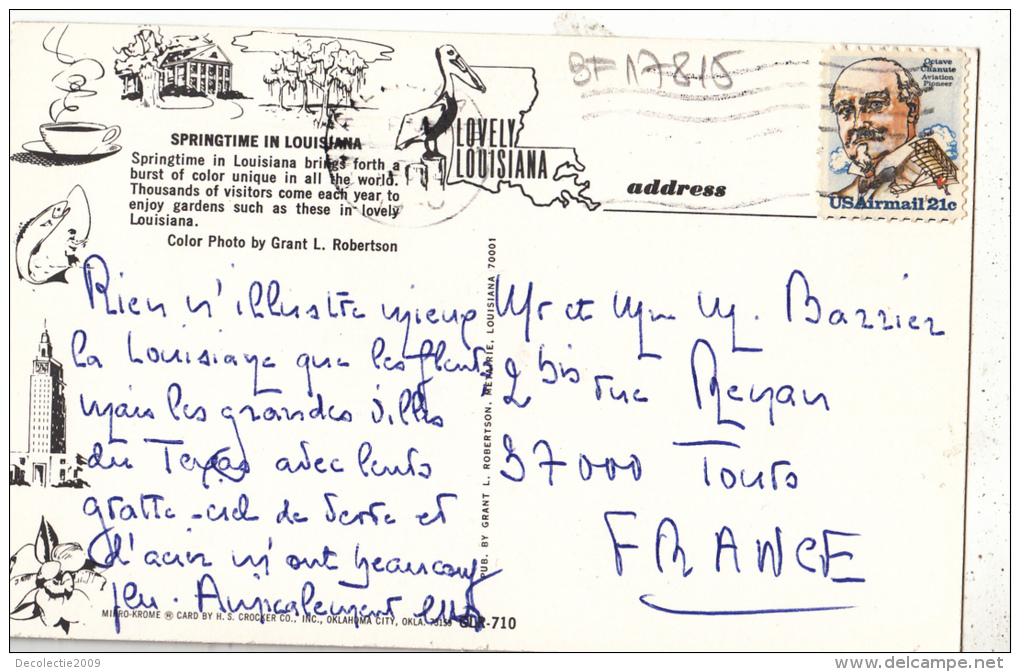 BF 17815
Octave
Chanute
Aviation
Pioneer
USAirmail 21c
LOVELY
LOUISIANA
address
SPRINGTIME IN LOUISIANA
Springtime in Louisiana brings forth a
burst of color unique in all the world.
Thousands of visitors come each year to
enjoy gardens such as these in lovely
Louisiana.
Color Photo by Grant L. Robertson
Rien n'illustre mieux
la Louisiane que les fleurs
mais les grandes villes
du Texas avec leurs
gratte-ciel de verre et
d'acier m'ont beaucoup
plu. Amicalement
PUB. BY GRANT L. ROBERTSON, METAIRIE, LOUISIANA 70001
Mr et Mme M. Barrier
2 bis rue
37000 Tours
FRANCE
MIKRO-KROME ® CARD BY H. S. CROCKER CO., INC., OKLAHOMA CITY, OKLA. 73153 GLR-710
Decolectie2009
www.delcampe.net